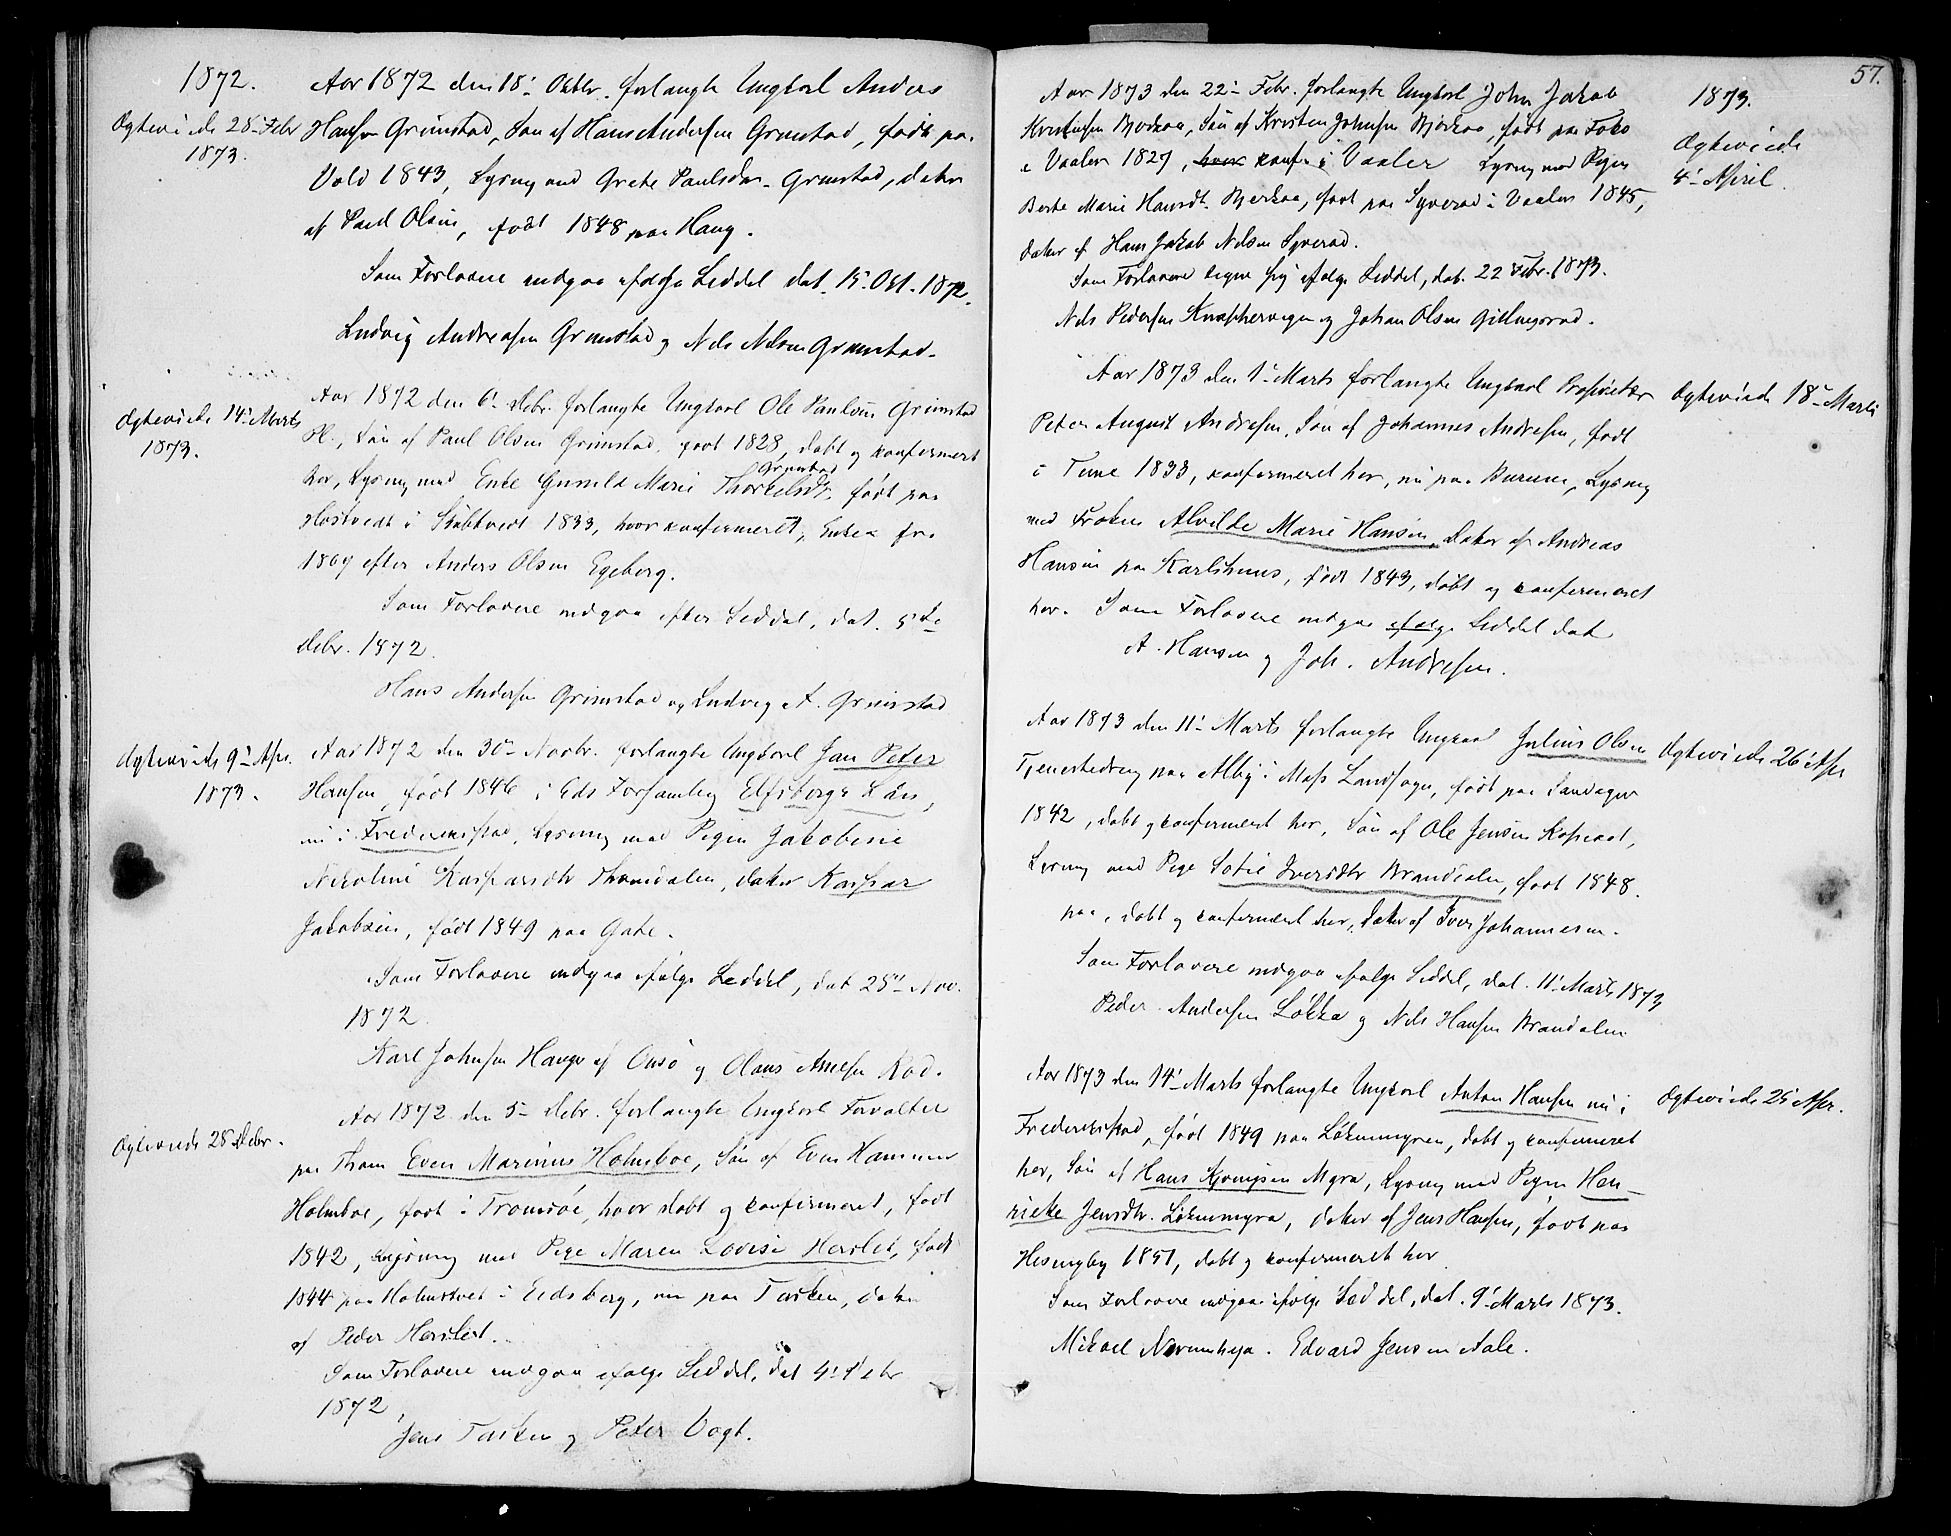 1872.
Ægteviede 28. Febr
1873.
Aar 1872 den 18' Oktbr. forlangte Ungkarl Anders
Hansen Grimstad, Søn af Hans Andersen Grimstad, født paa
Vold 1843, Lysning med Grete Paulsdtr. Grimstad, Datter
af Paul Olsen, født 1848 paa Haug.
Som Forlovere indgaa ifølge Seddel dat. 15' Okt. 1872.
Ludvig Andreasen Grimstad og Nils Nilsen Grimstad.
Ægteviede 14' Marts
1873.
Aar 1872 den 6' Debr. forlangte Ungkarl Ole Paulsen Grimstad
Søn af Paul Olsen Grimstad, født 1828, døbt og konfirmeret
Grimstad
her, Lysning med Enke Gunild Marie Thorkelsdtr. født paa
Hostvedt i Skibtvedt 1833, hvor konfirmeret, Enke fra
1869 efter Anders Olsen Egeberg.
Som Forlovere indgaa efter Seddel, dat. 5te
Debr. 1872.
Hans Andersen Grimstad og Ludvig A. Grimstad
Ægteviede 9' Apr.
1873.
Aar 1872 den 30' Novbr. forlangte Ungkarl Jan Peter
Hansen, født 1846 i Eds Forsamling Elfsborgs Län,
nu i Frederikstad, Lysning med Pigen Jakobine
Nicoline Kaspersdtr Thomdalen, Datter Kaspar
Jakobsen, født 1849 paa Gate.
Som Forlovere indgaa ifølge Seddel, dat 25' Nov.
1872.
Karl Johnsen Hauge af Onsø og Olaus Arnesen Rød.
Ægteviede 28 Debr.
Aar 1872 den 5' Debr. forlangte Ungkarl Forvalter
paa Thom Even Marinus Holmboe, Søn af Even Hammer
Holmboe, født i Tromsøe, hvor døbt og konfirmeret, født
1842, Lysning med Pige Maren Lovise Herslet, født
1844 paa Holmstvet i Eidsberg, nu paa Tasken, Datter
af Peder Herslet.
Som Forlovere indgaa ifølge Seddel, dat 4' Debr
1872,
Jens Tasken og Peter Vogt.
57.
1873.
Ægteviede
4' April.
Aar 1873 den 22' Febr. forlangte Ungkarl John Jakob
Kristensen Bjerkaa, Søn af Kristen Johnsen Bjerkaa, født paa Foko
i Vaaler 1827, hvor konfr. i Vaaler Lysning med Pigen
Berte Marie Hansdt. Bjerkaa, født paa Syverød i Vaaler 1845,
Datter af Hans Jakob Nilsen Syverød.
Som Forlovere tegne sig ifølge Seddel, dat. 22 Febr. 1873.
Nils Pedersen Knaphervegen og Johan Olsen Gillingsrød.
Aar 1873 den 1' Marts forlangte Ungkarl Proprietær
Peter August Andresen, Søn af Johannes Andresen, født
i Tune 1833, konfirmeret her, nu paa Burum, Lysning
med Frøken Alvilde Marie Hansen, Datter af Andreas
Hansen paa Karlshuus, født 1843, døbt og konfirmeret
her. Som Forlovere indgaa ifølge Seddel dat
A. Hansen og Joh. Andresen.
Ægteviede 18' Marts
Aar 1873 den 11' Marts forlangte Ungkarl Julius Olsen
Tjenestedreng paa Alby i Moss Landsogn, født paa Sandager
1842, døbt og konfirmeret her, Søn af Ole Jensen Kopraat,
Lysning med Pige Sofie Iversdtr Brandalen, født 1848.
paa, døbt og konfirmeret her, Datter af Iver Johannesen.
Som Forlovere indgaa ifølge Seddel, dat. 11' Marts 1873
Peder Andersen Løkka og Nils Hansen Brandalen
Ægteviede 26' Apr
Aar 1873 den 14' Marts forlangte Ungkarl Anton Hansen nu i
Frederikstad, født 1849 paa Løkenmyren, døbt og konfirmeret
her, Søn af Hans Kjempsen Myra, Lysning med Pigen Hen-
rikke Jensdtr. Løkenmyra, Datter af Jens Hansen, født paa
Hesengby 1851, døbt og konfirmeret her
Som Forlovere indgaa ifølge Seddel, dat. 9' Marts 1873.
Mikael Navrumhaga. Edvard Jensen Aale.
Ægteviede 25' Apr.